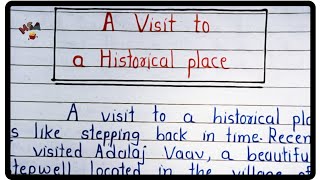 A Visit to
a Historical place
A visit to a historical pla
s like stepping back in time. Recen
visited Adalaj Vaav, a beautifu
stepwell located in the village of